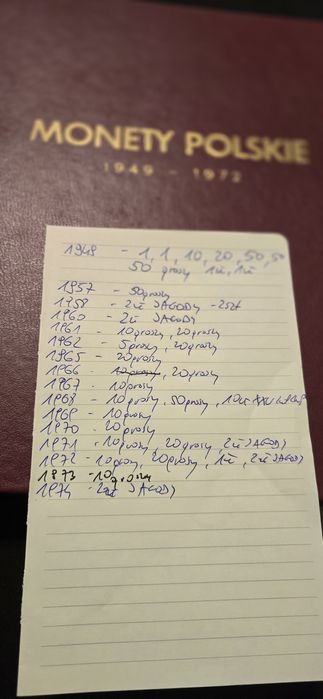 MONETY POLSKIE
1949 - 1972
1949 - 1, 1, 10, 20, 50, 50
50 groszy 1zł, 1zł
1957 - 50groszy
1958 - 2zł JAGODY - 25zł
1960 - 2zł JAGODY
1961 - 10groszy, 20groszy
1962 - 5groszy, 20groszy
1965 - 20groszy
1966 - 10groszy, 20groszy
1967 - 10groszy
1968 - 10groszy, 50groszy, 10zł XXV
1969 - 10groszy
1970 - 20groszy
1971 - 10groszy, 20groszy, 2zł JAGODY
1972 - 10groszy, 20groszy, 1zł, 2zł JAGODY
1973 - 10groszy
1974 - 2zł JAGODY